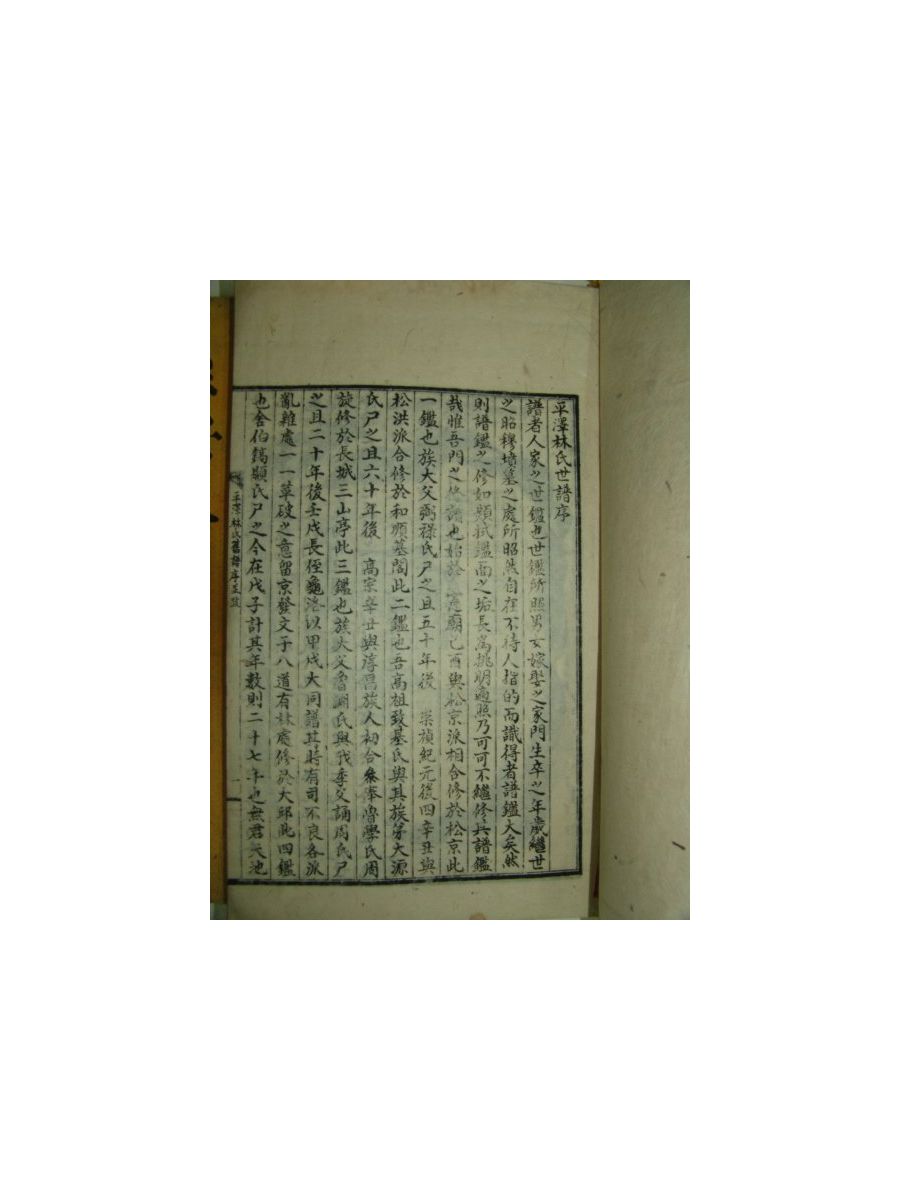 平澤林氏世譜序
譜者人家之世鑑也世鑑所照男女嫁娶之家門生卒之年歲繼世
之昭穆墳墓之處所昭然自在不待人指的而識得者譜鑑大矣然
則譜鑑之修如頻拭鑑面之垢長爲挑明遍照乃可可不繼修其譜鑑
哉惟吾門之修譜也始於 憲廟己酉與松京派相合修於松京此
一鑑也族大父弼祿氏尸之且五十年後 崇禎紀元後四辛丑與
松洪派合修於和順墓閣此二鑑也吾高祖致基氏與其族弟大源
氏尸之且六十年後 高宗辛丑與淳昌族人初合參奉魯學氏周
旋修於長城三山亭此三鑑也族大父魯淵氏與我季父誦周氏尸
之且二十年後壬戌長侄龜洛以甲戌大同譜其時有司不良各派
亂雜處一一草破之意留京發文于八道有林處修於大邱此四鑑
也舍伯鎬顯氏尸之今在戊子計其年數則二十七年也無君天池
平澤林氏舊譜序至跋
一